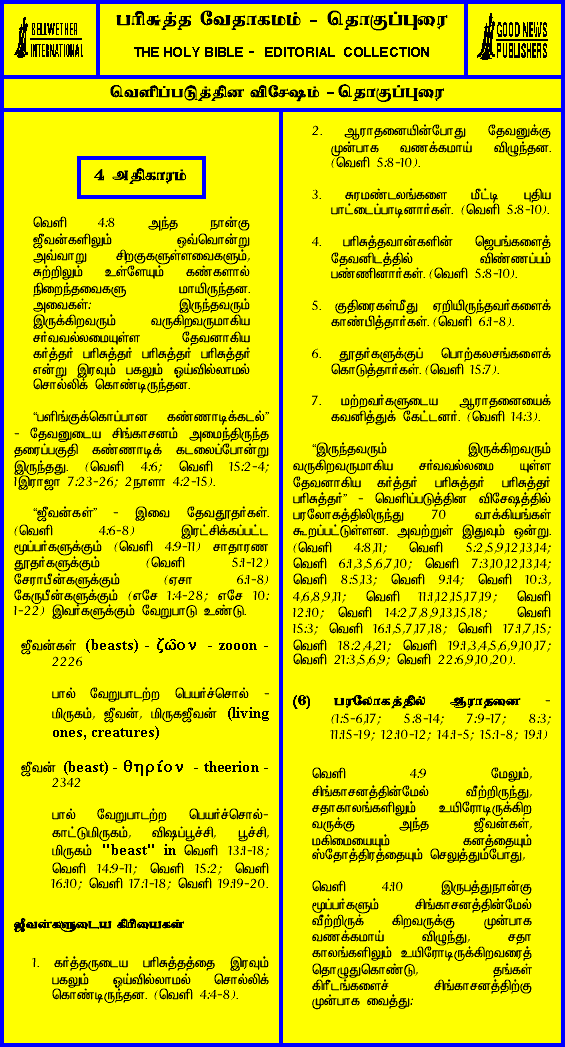 BELLWETHER
INTERNATIONAL
பரிசுத்த வேதாகமம் - தொகுப்புரை
THE HOLY BIBLE - EDITORIAL COLLECTION
GOOD NEWS
PUBLISHERS
வெளிப்படுத்தின விசேஷம் - தொகுப்புரை
4 அதிகாரம்
வெளி 4:8 அந்த நான்கு
ஜீவன்களிலும் ஒவ்வொன்று
அவ்வாறு சிறகுகளுள்ளவைகளும்,
சுற்றிலும் உள்ளேயும் கண்களால்
நிறைந்தவைகளு மாயிருந்தன.
அவைகள்: இருந்தவரும்
இருக்கிறவரும் வருகிறவருமாகிய
சர்வவல்லமையுள்ள தேவனாகிய
கர்த்தர் பரிசுத்தர் பரிசுத்தர் பரிசுத்தர்
என்று இரவும் பகலும் ஓய்வில்லாமல்
சொல்லிக் கொண்டிருந்தன.
“பளிங்குக்கொப்பான கண்ணாடிக்கடல்”
- தேவனுடைய சிங்காசனம் அமைந்திருந்த
தரைப்பகுதி கண்ணாடிக் கடலைப்போன்று
இருந்தது. (வெளி 4:6; வெளி 15:2-4;
1இராஜா 7:23-26; 2நாளா 4:2-15).
“ஜீவன்கள்” - இவை தேவதூதர்கள்.
(வெளி 4:6-8) இரட்சிக்கப்பட்ட
மூப்பர்களுக்கும் (வெளி 4:9-11) சாதாரண
தூதர்களுக்கும் (வெளி 5:1-12)
சேராபீன்களுக்கும் (ஏசா 6:1-8)
கேருபீன்களுக்கும் (எசே 1:4-28; எசே 10:
1-22) இவர்களுக்கும் வேறுபாடு உண்டு.
ஜீவன்கள் (beasts) - ζῶον - zooon -
2226
பால் வேறுபாடற்ற பெயர்ச்சொல் -
மிருகம், ஜீவன், மிருகஜீவன் (living
ones, creatures)
ஜீவன் (beast) - θηρίον - theerion -
2342
பால் வேறுபாடற்ற பெயர்ச்சொல்-
காட்டுமிருகம், விஷப்பூச்சி, பூச்சி,
மிருகம் "beast" in வெளி 13:1-18;
வெளி 14:9-11; வெளி 15:2; வெளி
16:10; வெளி 17:1-18; வெளி 19:19-20.
ஜீவன்களுடைய கிரியைகள்
1. கர்த்தருடைய பரிசுத்தத்தை இரவும்
பகலும் ஓய்வில்லாமல் சொல்லிக்
கொண்டிருந்தன. (வெளி 4:4-8).
2. ஆராதனையின்போது தேவனுக்கு
முன்பாக வணக்கமாய் விழுந்தன.
(வெளி 5:8-10).
3. சுரமண்டலங்களை மீட்டி புதிய
பாட்டைப்பாடினார்கள். (வெளி 5:8-10).
4. பரிசுத்தவான்களின் ஜெபங்களைத்
தேவனிடத்தில் விண்ணப்பம்
பண்ணினார்கள். (வெளி 5:8-10).
5. குதிரைகள்மீது ஏறியிருந்தவர்களைக்
காண்பித்தார்கள். (வெளி 6:1-8).
6. தூதர்களுக்குப் பொற்கலசங்களைக்
கொடுத்தார்கள். (வெளி 15:7).
7. மற்றவர்களுடைய ஆராதனையைக்
கவனித்துக் கேட்டனர். (வெளி 14:3).
“இருந்தவரும் இருக்கிறவரும்
வருகிறவருமாகிய சர்வவல்லமை யுள்ள
தேவனாகிய கர்த்தர் பரிசுத்தர் பரிசுத்தர்
பரிசுத்தர்” - வெளிப்படுத்தின விசேஷத்தில்
பரலோகத்திலிருந்து 70 வாக்கியங்கள்
கூறப்பட்டுள்ளன. அவற்றுள் இதுவும் ஒன்று.
(வெளி 4:8,11; வெளி 5:2,5,9,12,13,14;
வெளி 6:1,3,5,6,7,10; வெளி 7:3,10,12,13,14;
வெளி 8:5,13; வெளி 9:14; வெளி 10:3,
4,6,8,9,11; வெளி 11:1,12,15,17,19; வெளி
12:10; வெளி 14:2,7,8,9,13,15,18; வெளி
15:3; வெளி 16:1,5,7,17,18; வெளி 17:1,7,15;
வெளி 18:2,4,21; வெளி 19:1,3,4,5,6,9,10,17;
வெளி 21:3,5,6,9; வெளி 22:6,9,10,20).
(6) பரலோகத்தில் ஆராதனை -
(1:5-6,17; 5:8-14; 7:9-17; 8:3;
11:15-19; 12:10-12; 14:1-5; 15:1-8; 19:1)
வெளி 4:9 மேலும்,
சிங்காசனத்தின்மேல் வீற்றிருந்து,
சதாகாலங்களிலும் உயிரோடிருக்கிற
வருக்கு அந்த ஜீவன்கள்,
மகிமையையும் கனத்தையும்
ஸ்தோத்திரத்தையும் செலுத்தும்போது,
வெளி 4:10 இருபத்துநான்கு
மூப்பர்களும் சிங்காசனத்தின்மேல்
வீற்றிருக் கிறவருக்கு முன்பாக
வணக்கமாய் விழுந்து, சதா
காலங்களிலும் உயிரோடிருக்கிறவரைத்
தொழுதுகொண்டு, தங்கள்
கிரீடங்களைச் சிங்காசனத்திற்கு
முன்பாக வைத்து: